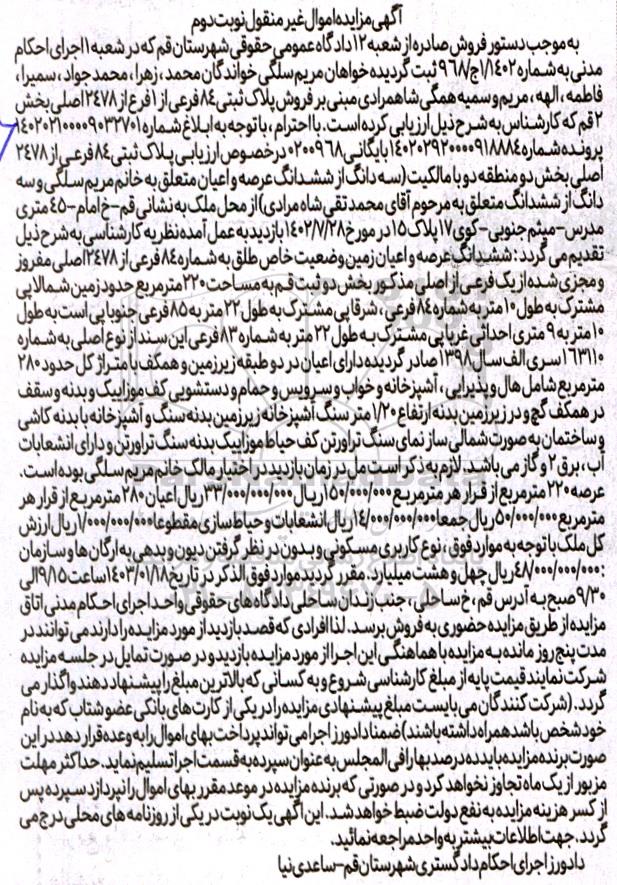 آگهی مزایده اموال غیر منقول نوبت دوم
به موجب دستور فروش صادره از شعبه ۱۲ دادگاه عمومی حقوقی شهرستان قم که در شعبه ۱ اجرای احکام
مدنی به شماره ۱۴۰۲/ج۱/۹۶۸ ثبت گردیده خواهان مریم سلگی خواندگان محمد، زهرا، محمد جواد، سمیرا،
فاطمه، الهه، مریم و سمیه همگی شاهمرادی مبنی بر فروش پلاک ثبتی ۸۴ فرعی از ۱ فرع از ۲۴۷۸ اصلی بخش
۲ قم که کارشناس به شرح ذیل ارزیابی کرده است. با احترام، با توجه به ابلاغ شماره ۱۴۰۲۰۲۱۰۰۰۰۹۰۳۲۷۰۱
پرونده شماره ۱۴۰۲۰۲۹۲۰۰۰۰۹۱۸۸۸۴ بایگانی ۰۲۰۰۹۶۸ در خصوص ارزیابی پلاک ثبتی ۸۴ فرعی از ۲۴۷۸
اصلی بخش دو منطقه دو با مالکیت (سه دانگ از ششدانگ عرصه و اعیان متعلق به خانم مریم سلگی و سه
دانگ از ششدانگ متعلق به مرحوم آقای محمد تقی شاه مرادی) از محل ملک به نشانی قم-خ امام-۴۵ متری
مدرس-میثم جنوبی-کوی ۱۷ پلاک ۱۵ در مورخ ۱۴۰۲/۷/۲۸ بازدید به عمل آمده نظریه کارشناسی به شرح ذیل
تقدیم می گردد: ششدانگ عرصه و اعیان زمین وضعیت خاص طلق به شماره ۸۴ فرعی از ۲۴۷۸ اصلی مفروز
و مجزی شده از یک فرعی از اصلی مذکور بخش دو ثبت قم به مساحت ۲۲۰ مترمربع حدود زمین شمالا پی
مشترک به طول ۱۰ متر به شماره ۸۴ فرعی، شرقا پی مشترک به طول ۲۲ متر به ۸۵ فرعی جنوبا پی است به طول
۱۰ متر به ۹ متری احداثی غربا پی مشترک به طول ۲۲ متر به شماره ۸۳ فرعی این سند از نوع اصلی به شماره
۱۶۳۱۱۰ سری الف سال ۱۳۹۸ صادر گردیده دارای اعیان در دو طبقه زیرزمین و همکف با متراژ کل حدود ۲۸۰
مترمربع شامل هال و پذیرایی، آشپزخانه و خواب و سرویس و حمام و دستشویی کف موزاییک و بدنه و سقف
در همکف گچ و در زیرزمین بدنه ارتفاع ۱/۲۰ متر سنگ آشپزخانه زیرزمین بدنه سنگ و آشپزخانه با بدنه کاشی
و ساختمان به صورت شمالی ساز نمای سنگ تراورتن کف حیاط موزاییک بدنه سنگ تراورتن و دارای انشعابات
آب، برق ۲ و گاز می باشد. لازم به ذکر است مل در زمان بازدید در اختیار مالک خانم مریم سلگی بوده است.
عرصه ۲۲۰ مترمربع از قرار هر مترمربع ۱۵۰/۰۰۰/۰۰۰ ریال ۳۳/۰۰۰/۰۰۰/۰۰۰ ریال اعیان ۲۸۰ مترمربع از قرار هر
مترمربع ۵۰/۰۰۰/۰۰۰ ریال جمعا ۱۴/۰۰۰/۰۰۰/۰۰۰ ریال انشعابات و حیاط سازی مقطوعا ۱/۰۰۰/۰۰۰/۰۰۰ ریال ارزش
کل ملک با توجه به موارد فوق، نوع کاربری مسکونی و بدون در نظر گرفتن دیون و بدهی به ارگان ها و سازمان
: ۴۸/۰۰۰/۰۰۰/۰۰۰ ریال چهل و هشت میلیارد. مقرر گردید موارد فوق الذکر در تاریخ ۱۴۰۳/۰۱/۱۸ ساعت ۹/۱۵ الی
۹/۳۰ صبح به آدرس قم، خ ساحلی، جنب زندان ساحلی دادگاه های حقوقی واحد اجرای احکام مدنی اتاق
مزایده از طریق مزایده حضوری به فروش برسد. لذا افرادی که قصد بازدید از مورد مزایده را دارند می توانند در
مدت پنج روز مانده به مزایده با هماهنگی این اجرا از مورد مزایده بازدید و در صورت تمایل در جلسه مزایده
شرکت نمایند قیمت پایه از مبلغ کارشناسی شروع و به کسانی که بالاترین مبلغ را پیشنهاد دهند واگذار می
گردد. (شرکت کنندگان می بایست مبلغ پیشنهادی مزایده را در یکی از کارت های بانکی عضو شتاب که به نام
خود شخص باشد همراه داشته باشند) ضمنا دادورز اجرا می تواند پرداخت بهای اموال را به وعده قرار دهد در این
صورت برنده مزایده باید ده درصد بها را فی المجلس به عنوان سپرده به قسمت اجرا تسلیم نماید. حداکثر مهلت
مزبور از یک ماه تجاوز نخواهد کرد و در صورتی که برنده مزایده در موعد مقرر بهای اموال را نپردازد سپرده پس
از کسر هزینه مزایده به نفع دولت ضبط خواهد شد. این آگهی یک نوبت در یکی از روزنامه های محلی درج می
گردد. جهت اطلاعات بیشتر به واحد مراجعه نمائید.
دادورز اجرای احکام دادگستری شهرستان قم-ساعدی نیا